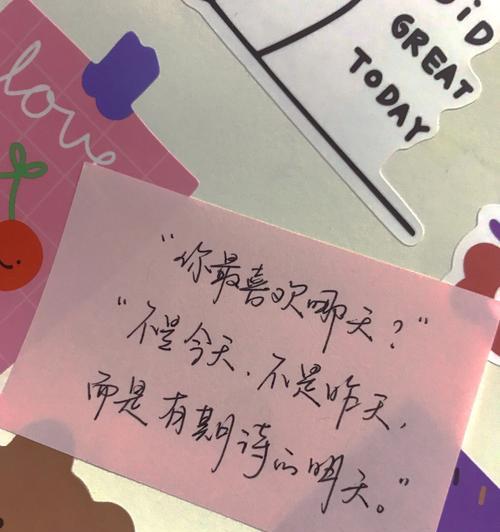 DiD
GREAT
TODAY
love
“你最喜欢哪天？”
“不是今天.不是昨天,
而是有期待的明天。”